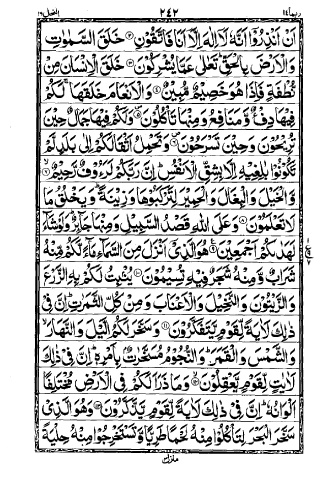 ربما ١٤ ٢٤٢ النحل ١٦
اَنْ اَنْذِرُوْٓا اَنَّهٗ لَآ اِلٰهَ اِلَّآ اَنَا فَاتَّقُوْنِ ۝ خَلَقَ السَّمٰوٰتِ
وَالْاَرْضَ بِالْحَقِّ ؕ تَعٰلٰى عَمَّا يُشْرِكُوْنَ ۝ خَلَقَ الْاِنْسَانَ مِنْ
نُّطْفَةٍ فَاِذَا هُوَ خَصِيْمٌ مُّبِيْنٌ ۝ وَالْاَنْعَامَ خَلَقَهَا ۚ لَكُمْ
فِيْهَا دِفْءٌ وَّمَنَافِعُ وَمِنْهَا تَاْكُلُوْنَ ۝ وَلَكُمْ فِيْهَا جَمَالٌ حِيْنَ
تُرِيْحُوْنَ وَحِيْنَ تَسْرَحُوْنَ ۝ وَتَحْمِلُ اَثْقَالَكُمْ اِلٰى بَلَدٍ لَّمْ
تَكُوْنُوْا بٰلِغِيْهِ اِلَّا بِشِقِّ الْاَنْفُسِ ؕ اِنَّ رَبَّكُمْ لَرَءُوْفٌ رَّحِيْمٌ ۝
وَّالْخَيْلَ وَالْبِغَالَ وَالْحَمِيْرَ لِتَرْكَبُوْهَا وَزِيْنَةً ؕ وَيَخْلُقُ مَا
لَا تَعْلَمُوْنَ ۝ وَعَلَى اللّٰهِ قَصْدُ السَّبِيْلِ وَمِنْهَا جَآئِرٌ ؕ وَلَوْ شَآءَ
لَهَدٰىكُمْ اَجْمَعِيْنَ ۝ هُوَ الَّذِيْٓ اَنْزَلَ مِنَ السَّمَآءِ مَآءً لَّكُمْ مِّنْهُ
شَرَابٌ وَّمِنْهُ شَجَرٌ فِيْهِ تُسِيْمُوْنَ ۝ يُنْۢبِتُ لَكُمْ بِهِ الزَّرْعَ
وَالزَّيْتُوْنَ وَالنَّخِيْلَ وَالْاَعْنَابَ وَمِنْ كُلِّ الثَّمَرٰتِ ؕ اِنَّ فِيْ
ذٰلِكَ لَاٰيَةً لِّقَوْمٍ يَّتَفَكَّرُوْنَ ۝ وَسَخَّرَ لَكُمُ الَّيْلَ وَالنَّهَارَ ۙ
وَالشَّمْسَ وَالْقَمَرَ ؕ وَالنُّجُوْمُ مُسَخَّرٰتٌۢ بِاَمْرِهٖ ؕ اِنَّ فِيْ ذٰلِكَ
لَاٰيٰتٍ لِّقَوْمٍ يَّعْقِلُوْنَ ۝ وَمَا ذَرَاَ لَكُمْ فِي الْاَرْضِ مُخْتَلِفًا
اَلْوَانُهٗ ؕ اِنَّ فِيْ ذٰلِكَ لَاٰيَةً لِّقَوْمٍ يَّذَّكَّرُوْنَ ۝ وَهُوَ الَّذِيْ
سَخَّرَ الْبَحْرَ لِتَاْكُلُوْا مِنْهُ لَحْمًا طَرِيًّا وَّتَسْتَخْرِجُوْا مِنْهُ حِلْيَةً
منزل ٣